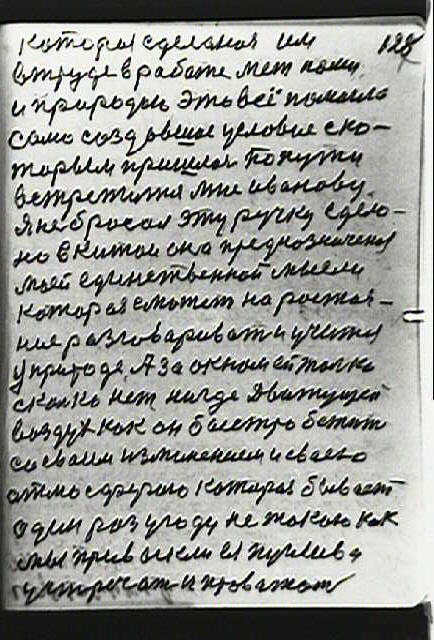 которая сделаная им 128
в труде в работе мет
и природы это всё помогло
само создавшее условие ско-
торым пришлос по пути
встретится мне иванову.
я не бросал эту ручку сдело-
но в китаи она предназначена
моей единственной мысли
которая сможет на ростоя-
ние разговаривать и учится
у природе. А за окном ей только
сколко нет нигде Движущей
воздух как он быстро бежит
со своим изменением и своею
атмосферою которая бывает
один раз у году не такою как
мы привыкли ея
устречат и проважат